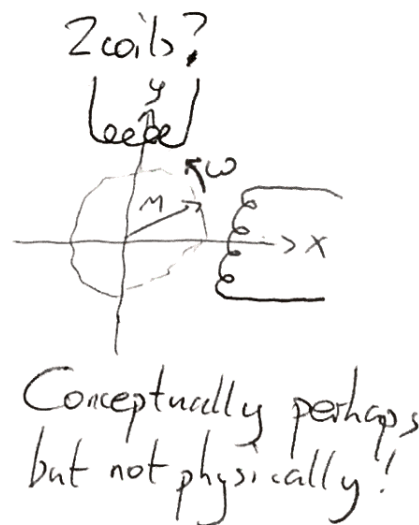 2 coils?
y
ω
M
x
Conceptually perhaps
but not physically!